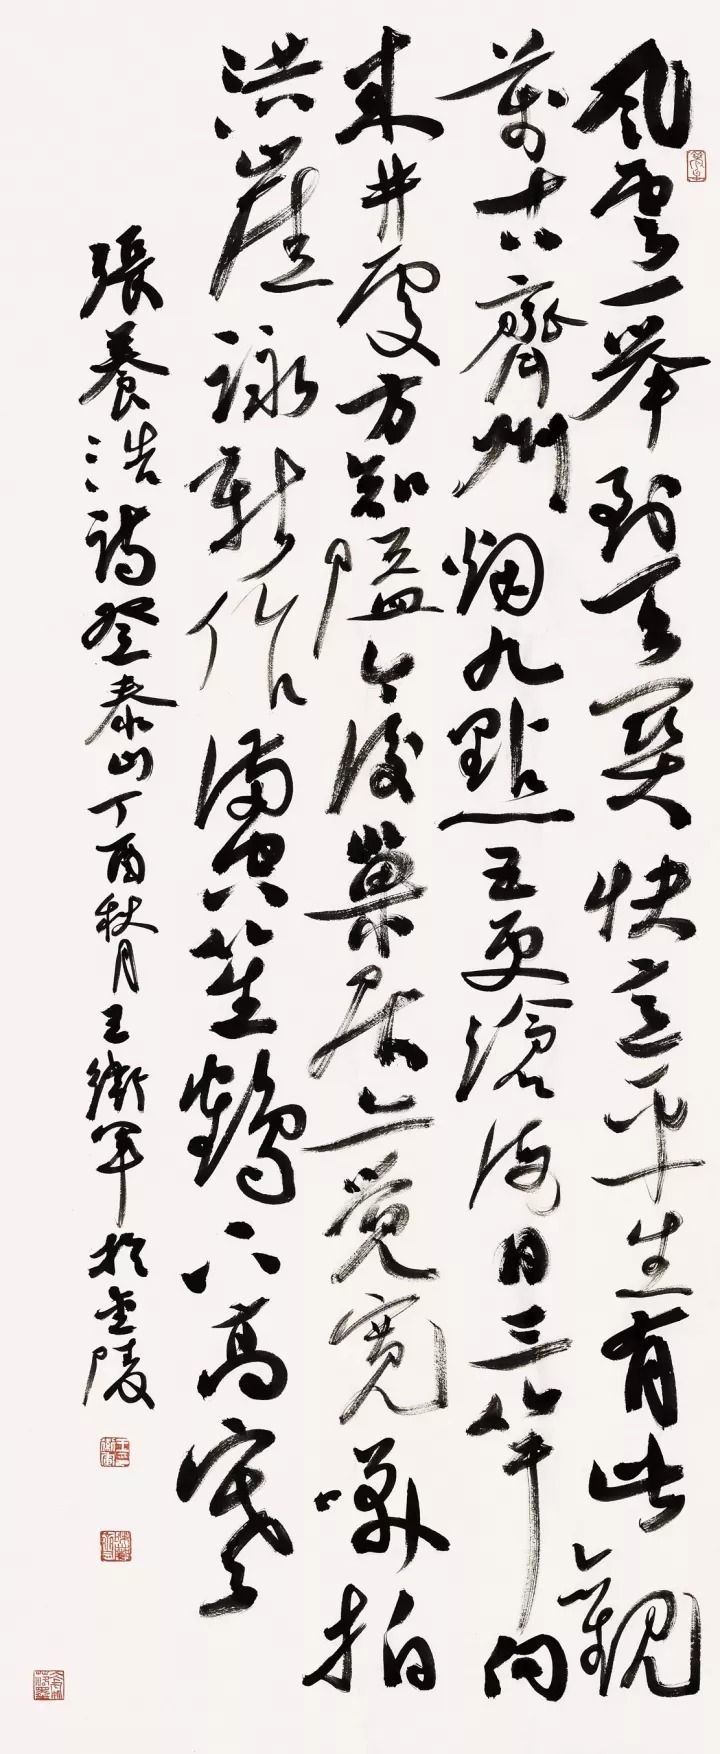 風雲一舉到天關快意平生有此觀
萬古齊州烟九點五更滄海日三竿向
来井處方知隘今後巢居亦覺寬咲拍
洪崖詠新作滿空笙鶴下高寒
張養浩詩登泰山丁酉秋月王衛軍於金陵